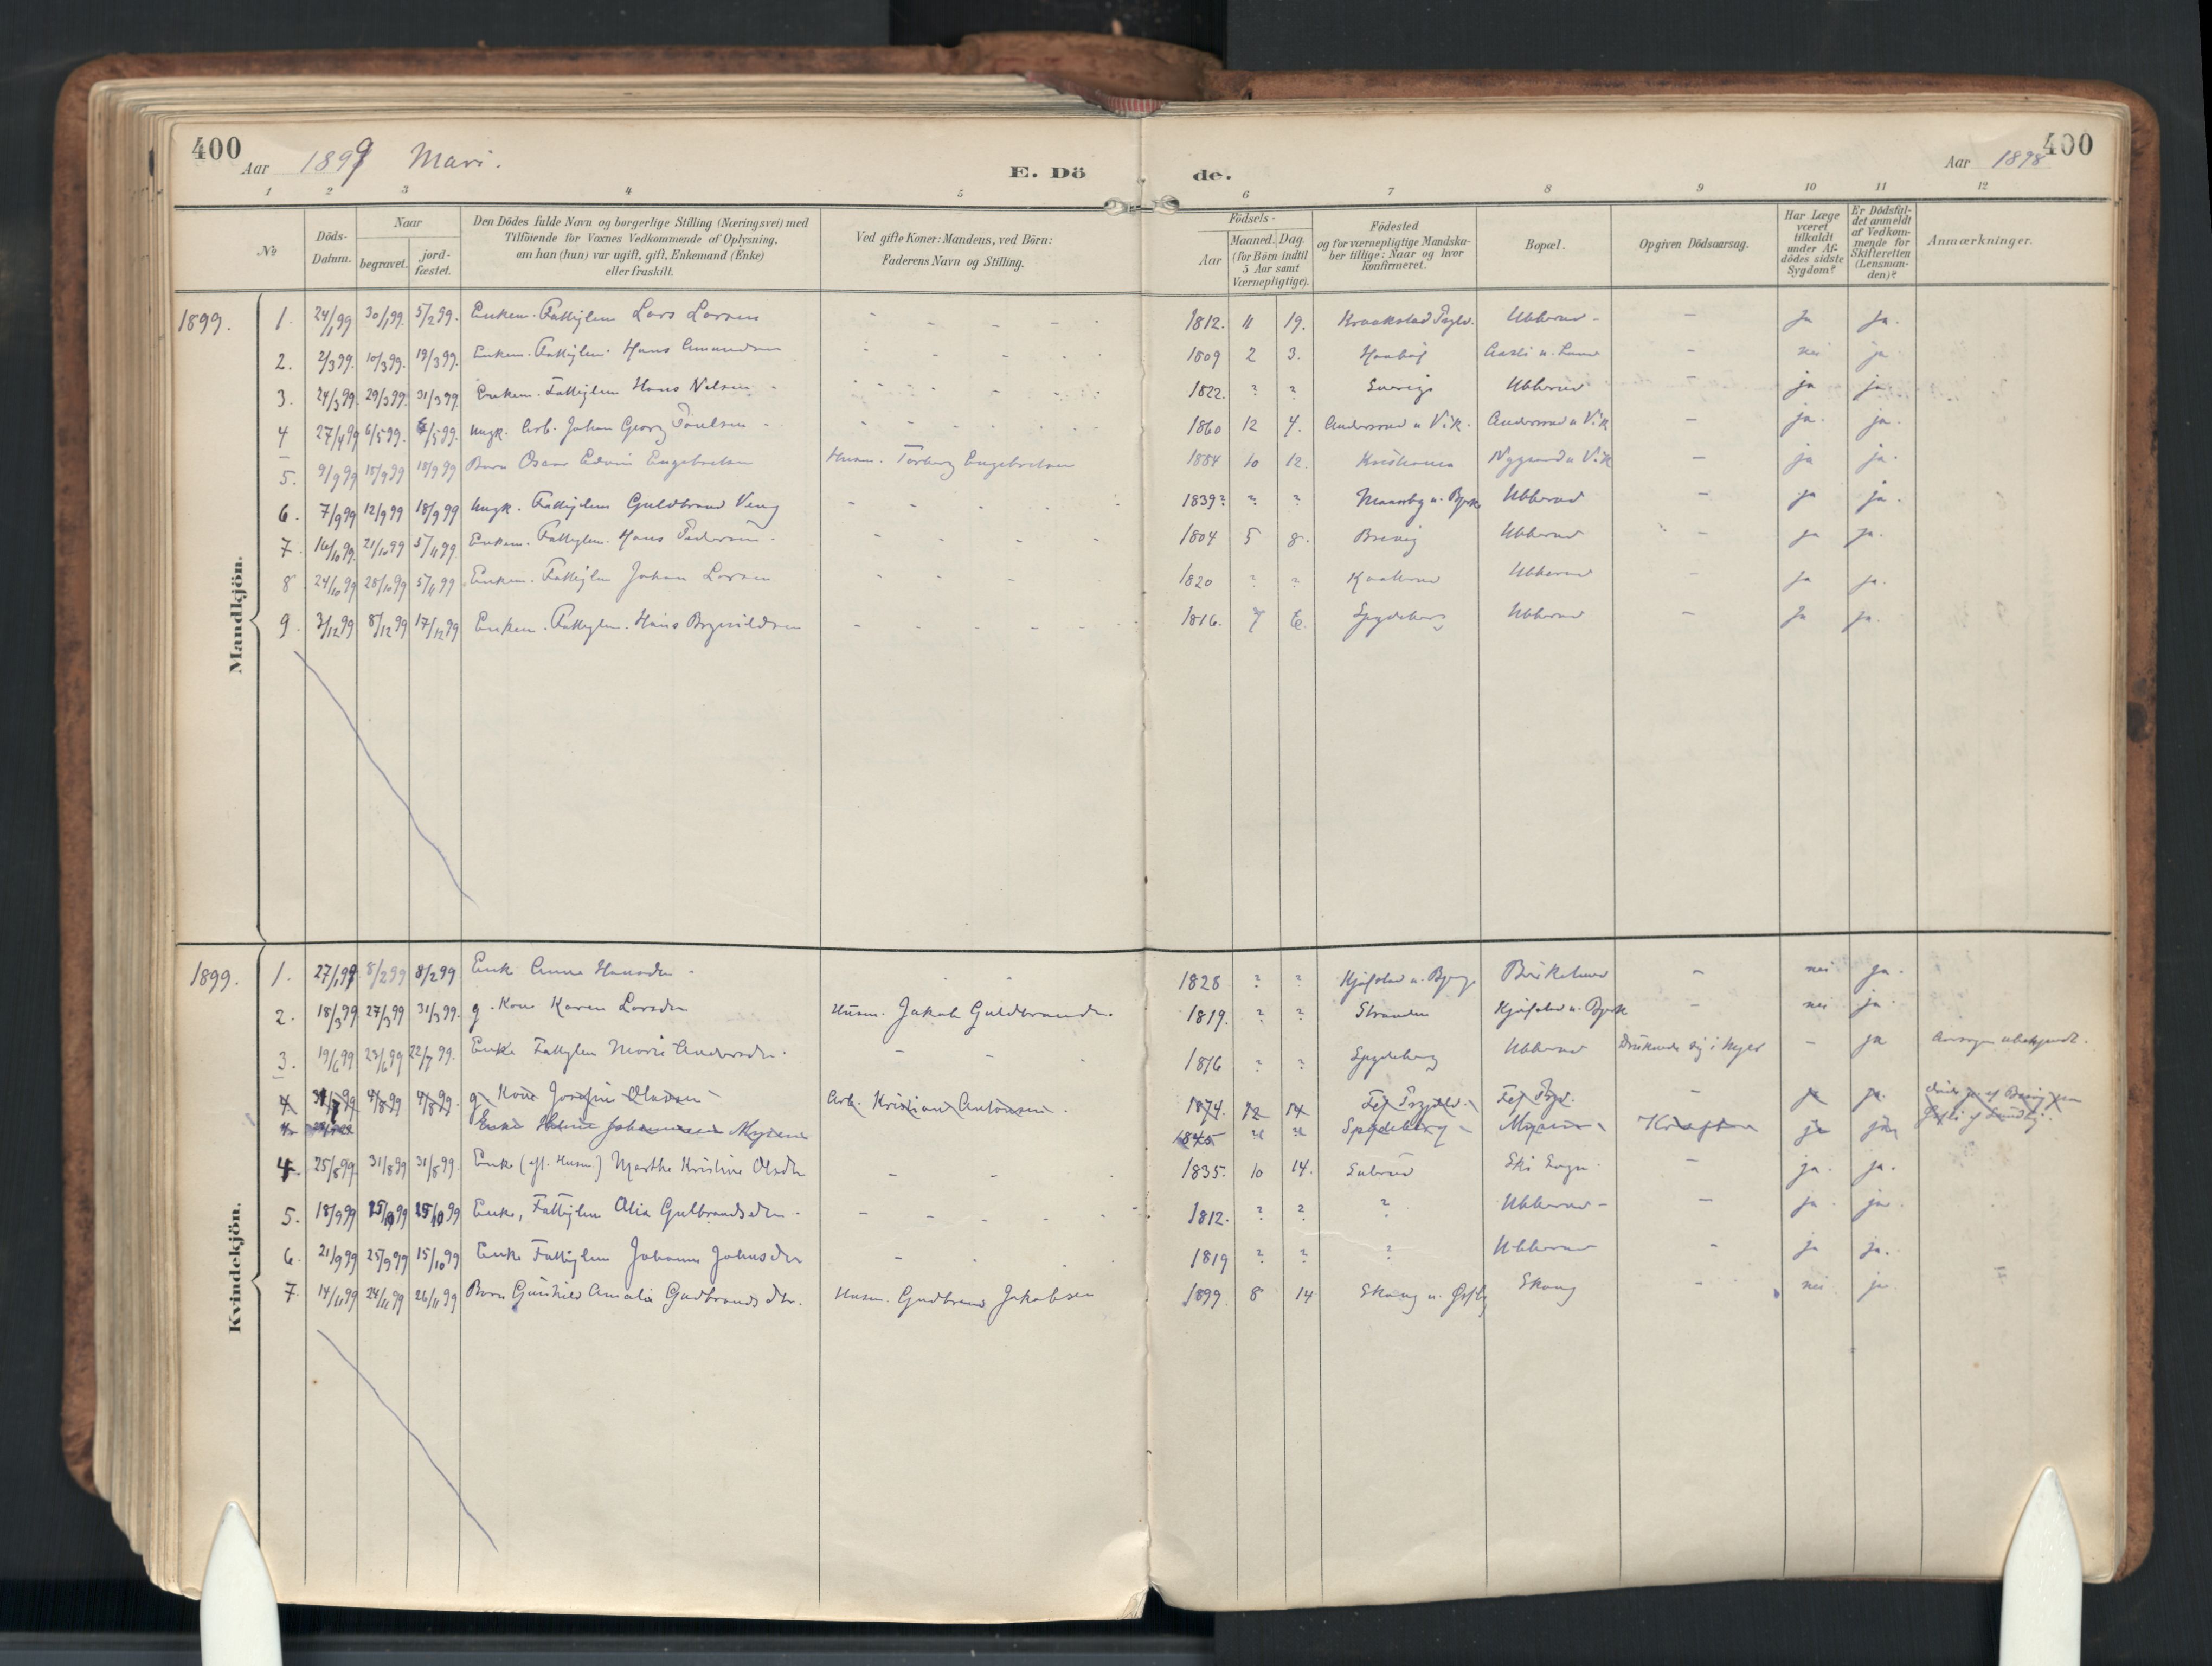 400
Aar 1899 Mari.
E. Dö
de.
Aar 1898
400
1 2 3 4 5 6 7 8 9 10 11 12
No
Döds-Datum.
Naar
begravet.
jord-fæstet.
Den Dödes fulde Navn og borgerlige Stilling (Næringsvei) med
Tilföiende for Voxnes Vedkommende af Oplysning,
om han (hun) var ugift, gift, Enkemand (Enke)
eller fraskilt.
Ved gifte Koner: Mandens, ved Börn:
Faderens Navn og Stilling.
Födsels-
Aar
Maaned. Dag.
(for Börn indtil
5 Aar samt
Værnepligtige).
Födested
og for værnepligtige Mandska-
ber tillige: Naar og hvor
konfirmeret.
Bopæl.
Opgiven Dödsaarsag.
Har Læge
været
tilkaldt
under Af-
dödes sidste
Sygdom?
Er Dödsfal-
det anmeldt
af Vedkom-
mende for
Skifteretten
(Lensman-
den)?
Anmærkninger.
Mandkjön.
1899. 1. 24/1 99 30/1 99. 5/2 99. Enkem. Fattiglem Lars Larsen - - - - - 1812. 11 19. Kraakstad Prgld. Ubberud - - ja ja.
2. 2/3 99. 10/3 99. 19/3 99. Enkem. Fattiglem. Hans Amundsen - - - - 1809 2 3. Haabøl - nei ja
3. 24/3 99. 29/3 99. 31/3 99. Enkem. Fattiglem Hans Nilsen - - - - 1822. ? ? Sverige Ubberud - ja ja.
4 27/4 99 6/5 99. 6/5 99. Ungk. Arb. Johan Georg Poulsen - - - - 1860 12 4. Andersrud u Vik. Andersrud u Vik - ja. ja.
5. 9/9 99 15/9 99 18/9 99 Barn Oscar Edvin Engebretsen Husm. Torberg Engebretsen 1884 10 12. Kristiania Nygaard u Vik - ja ja.
6. 7/9 99 12/9 99 18/9 99 Ungk. Fattiglem Guldbrand Veng - - - - 1839? ? ? Ubberud - ja ja.
7. 16/10 99. 21/10 99 5/11 99. Enkem. Fattiglem. Hans Pedersen - - - - 1804 5 8. Brevig Ubberud - ja ja.
8 24/10 99 28/10 99 5/11 99 Enkem. Fattiglem Johan Larsen - - - 1820 ? ? Ubberud - ja ja.
9. 3/12 99 8/12 99 17/12 99 Enkem. Fattiglem. Hans Brynildsen - - - - - 1816. 7 6. Spydeberg Ubberud - ja ja.
Kvindekjön.
1899. 1. 27/1 99 8/2 99 8/2 99 Enke Anne Hansdtr - - 1828 ? ? Birkelund - nei ja.
2. 18/3 99 27/3 99 31/3 99. g. Kone Karen Larsdtr Husm. Jakob Guldbrands. 1819. ? ? Stranden - nei ja.
3. 19/6 99 23/6 99 22/7 99. Enke Fattiglem Marie Andersdtr. - - 1816 ? ? Spydeberg Ubberud Druknede sig i - ja Aarsagen ubekjendt.
4 31/7 99 4/8 99 4/8 99. g. Kone Josefine Olavsen - Arb. Kristian Antonsen. 1874. 12 14 - ja ja.
4 Enke Helene Johannesen Myrene 1845 Spydeberg - Myrene Kræft ja ja
4. 25/8 99. 31/8 99 31/8 99. Enke (af. Husm.) Marthe Kristine Olsdtr - - 1835. 10 14. Ski Sogn. - ja. ja.
5. 18/9 99 15/10 99 15/10 99 Enke, Fattiglem Olia Gulbrandsdtr. - - - 1812. ? ? ? Ubberud - - ja ja.
6. 21/9 99 25/9 99 15/10 99 Enke Fattiglem Johanne Johnsdtr - 1819 ? ? ? Ubberud - ja ja.
7. 14/11 99 24/11 99 26/11 99 Barn Gunhild Amalie Gudbrandsdtr. Husm. Gudbrand Jakobsen 1899 8 14 Skoug u. Østby Skoug - nei ja